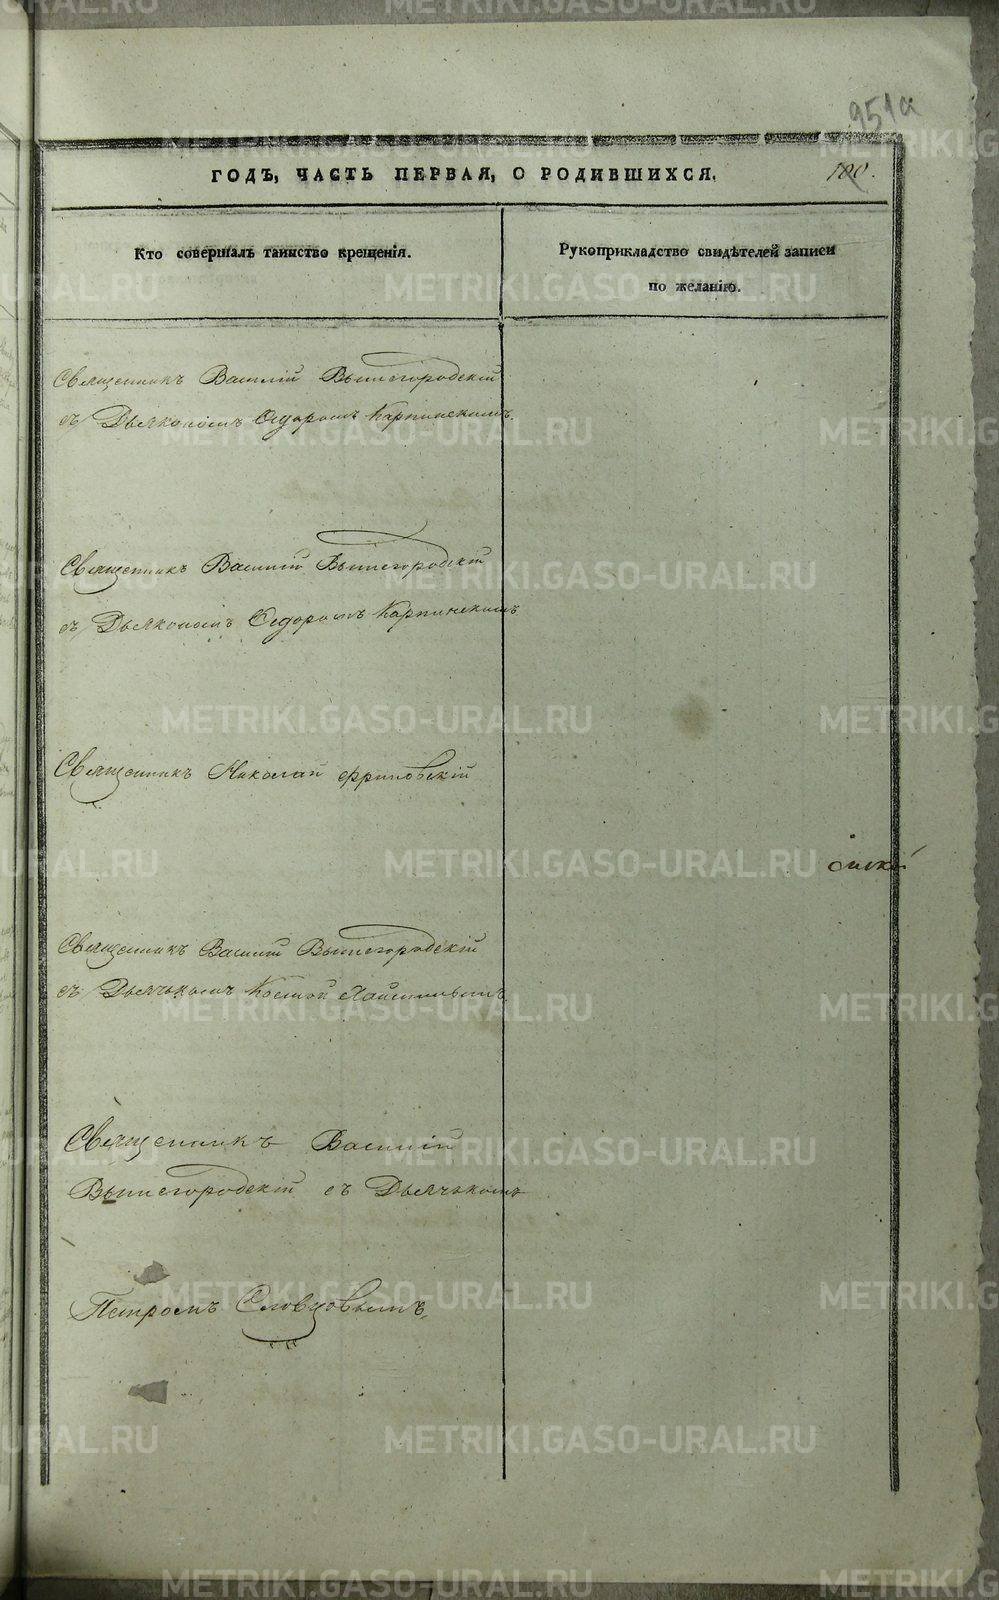 951а
ГОДЪ, ЧАСТЬ ПЕРВАЯ, О РОДИВШИХСЯ.
100.
Кто совершалъ таинство крещенія.
Рукоприкладство свидѣтелей записи
по желанію.
Священникъ Василій Вышегородскій
съ Дьякономъ Ѳедоромъ Карпинскимъ.
Священникъ Василій Вышегородскій
съ Дьякономъ Ѳедоромъ Карпинскимъ
Священникъ Николай
Священникъ Василій Вышегородскій
съ Дьячькомъ Космой
Священникъ Василій
Вышегородскій съ Дьячькомъ
Петромъ Словцовымъ.
METRIKI.GASO-URAL.RU